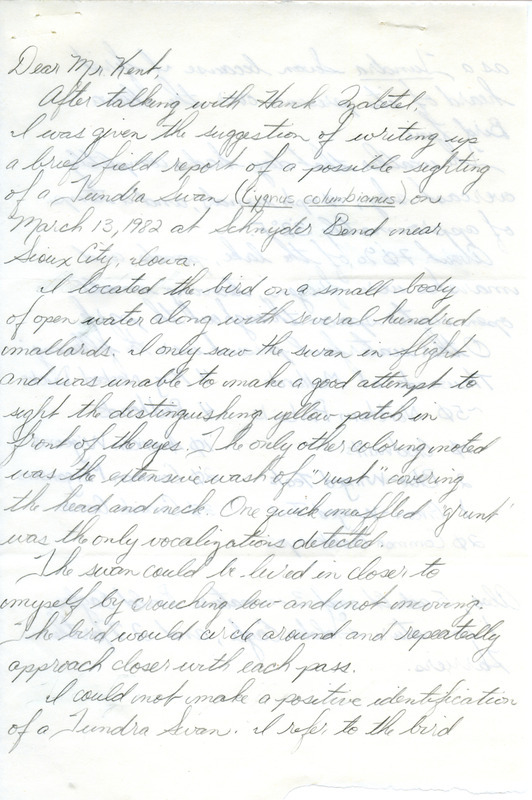 Dear Mr. Kent,
After talking with Hank Zaletel,
I was given the suggestion of writing up
a brief field report of a possible sighting
of a Tundra Swan (Cygnus columbianus) on
March 13, 1982 at Schnyder Bend near
Sioux City, Iowa.
I located the bird on a small body
of open water along with several hundred
mallards. I only saw the swan in flight
and was unable to make a good attempt to
sight the distinguishing yellow patch in
front of the eyes. The only other coloring noted
was the extensive wash of "rust" covering
the head and neck. One quick muffled 'grunt'
was the only vocalizations detected.
The swan could be lured in closer to
myself by crouching low and not moving.
The bird would circle around and repeatedly
approach closer with each pass.
I could not make a positive identification
of a Tundra Swan. I refer to the bird